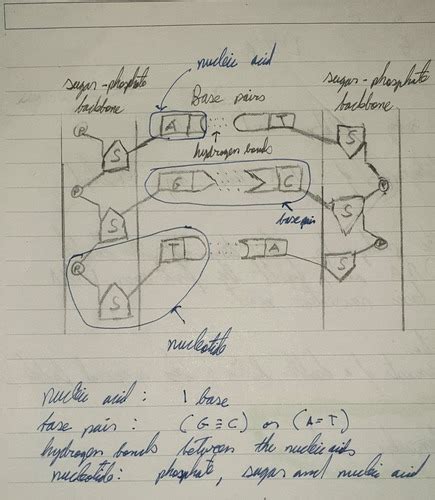 nucleic acid
sugar-phosphate
backbone
Base pairs
sugar-phosphate
backbone
P S A T S
hydrogen bonds
P S G C S P
base pair
P S T A S P
nucleotide
nucleic acid : 1 base
base pairs : (G≡C) or (A=T)
hydrogen bonds between the nucleic acids
nucleotide: phosphate, sugar and nucleic acid